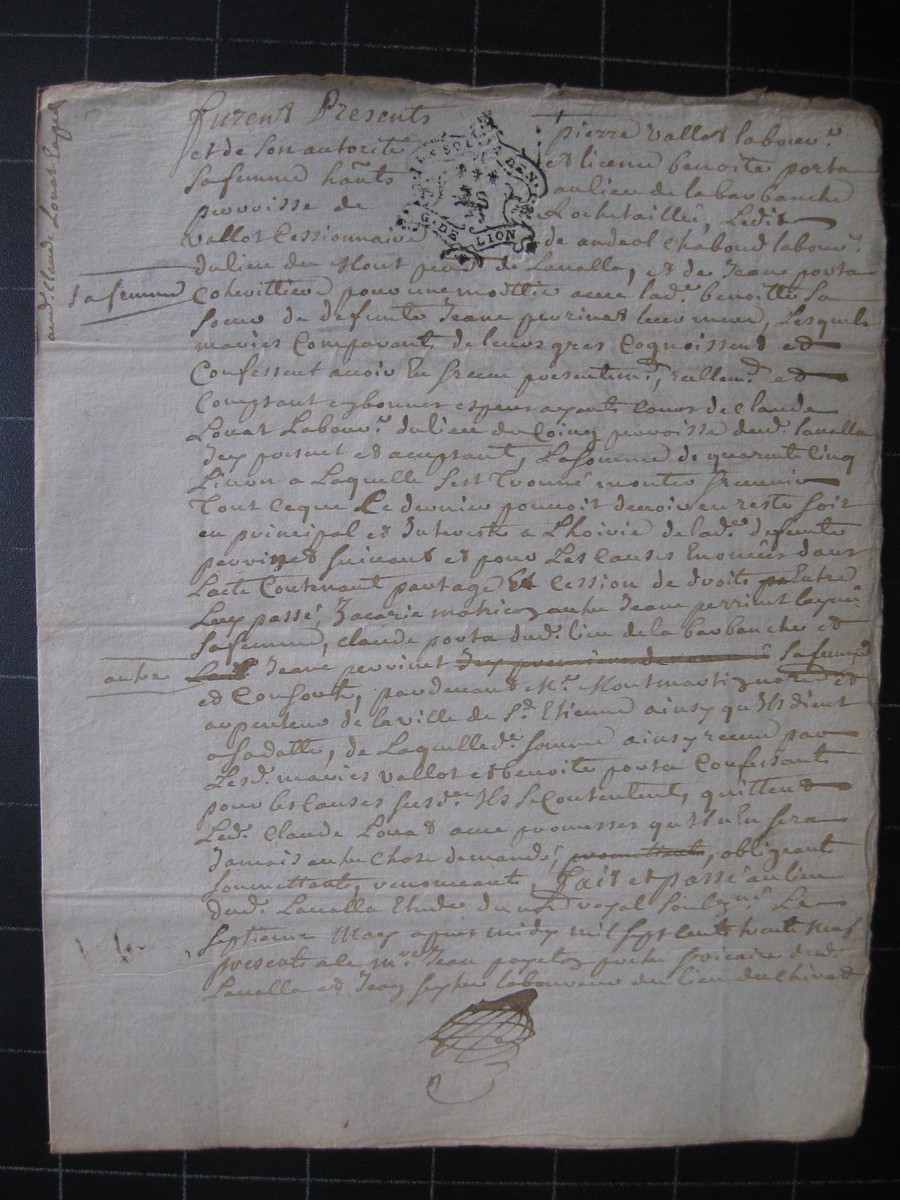 furent Presents pierre vallot labour.r
et de son autorité et licence benoite porta
sa femme hãnts au lieu de la barbanche
parroisse de Rochetaillée, Ledit
vallot Cessionnaire de andeol Chaboud labour.r
du lieu du Mont de Lavalla, et de Jeane porta
sa femme
Cohéritiere pour une moittié avec lad.e benoitte sa
soeur de defunte Jeane perrinet leur mere, Lesquels
mariés Comparants de leurs gres Cognoissent et
Confessent avoir En receu presentem.t, reellem.t et
Comptant en bonnes especes ayants Cours de Claude
Louat Labour.r du lieu du Coing parroisse dud. lavalla
Jcy present et acceptant, La somme de quarente Cinq
Livres a Laquelle s'est trouvé monter
Tout Ceque Ce dernier pouvoit devoir en reste soit
en principal et Interests a L'hoirie de lad.e defunte
perrinet suivant et pour Les Causes Enoncées dans
L'acte Contenant partage Et Cession de droits Entre
Luy passé, Zacarie matricz autre Jeane perrinet
sa femme, claude porta dud. lieu de la barbanche et
autre Jeane perrinet sa femme
et Consorts, pardevant M.e Montmartiz notaire et
arpenteur de la ville de S.t Etienne ainsy qu'ils dient
a sa datte, de Laquelle d.e somme ainsy receue par
Lesd. mariés vallot et benoite porta Confessants
pour les Causes susd.es Ils se Contentent, quittent
Led. Claude Louat avec promesses qu'il n'En sera
Jamais autre Chose demandé, promettants, obligeant
soumettant, renonceant, Fait et passé au lieu
dud. Lavalla Etude du no.re royal soubz.né Le
septieme May apres midy mil sept cents trente neuf
presents a le m.re Jean prestre vicaire dud.
Lavalla et Jean laboureur du lieu du
aud. Claude Louat
G. DE LION